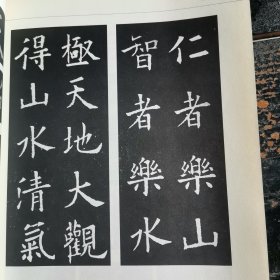 仁者樂山
智者樂水
極天地大觀
得山水清氣